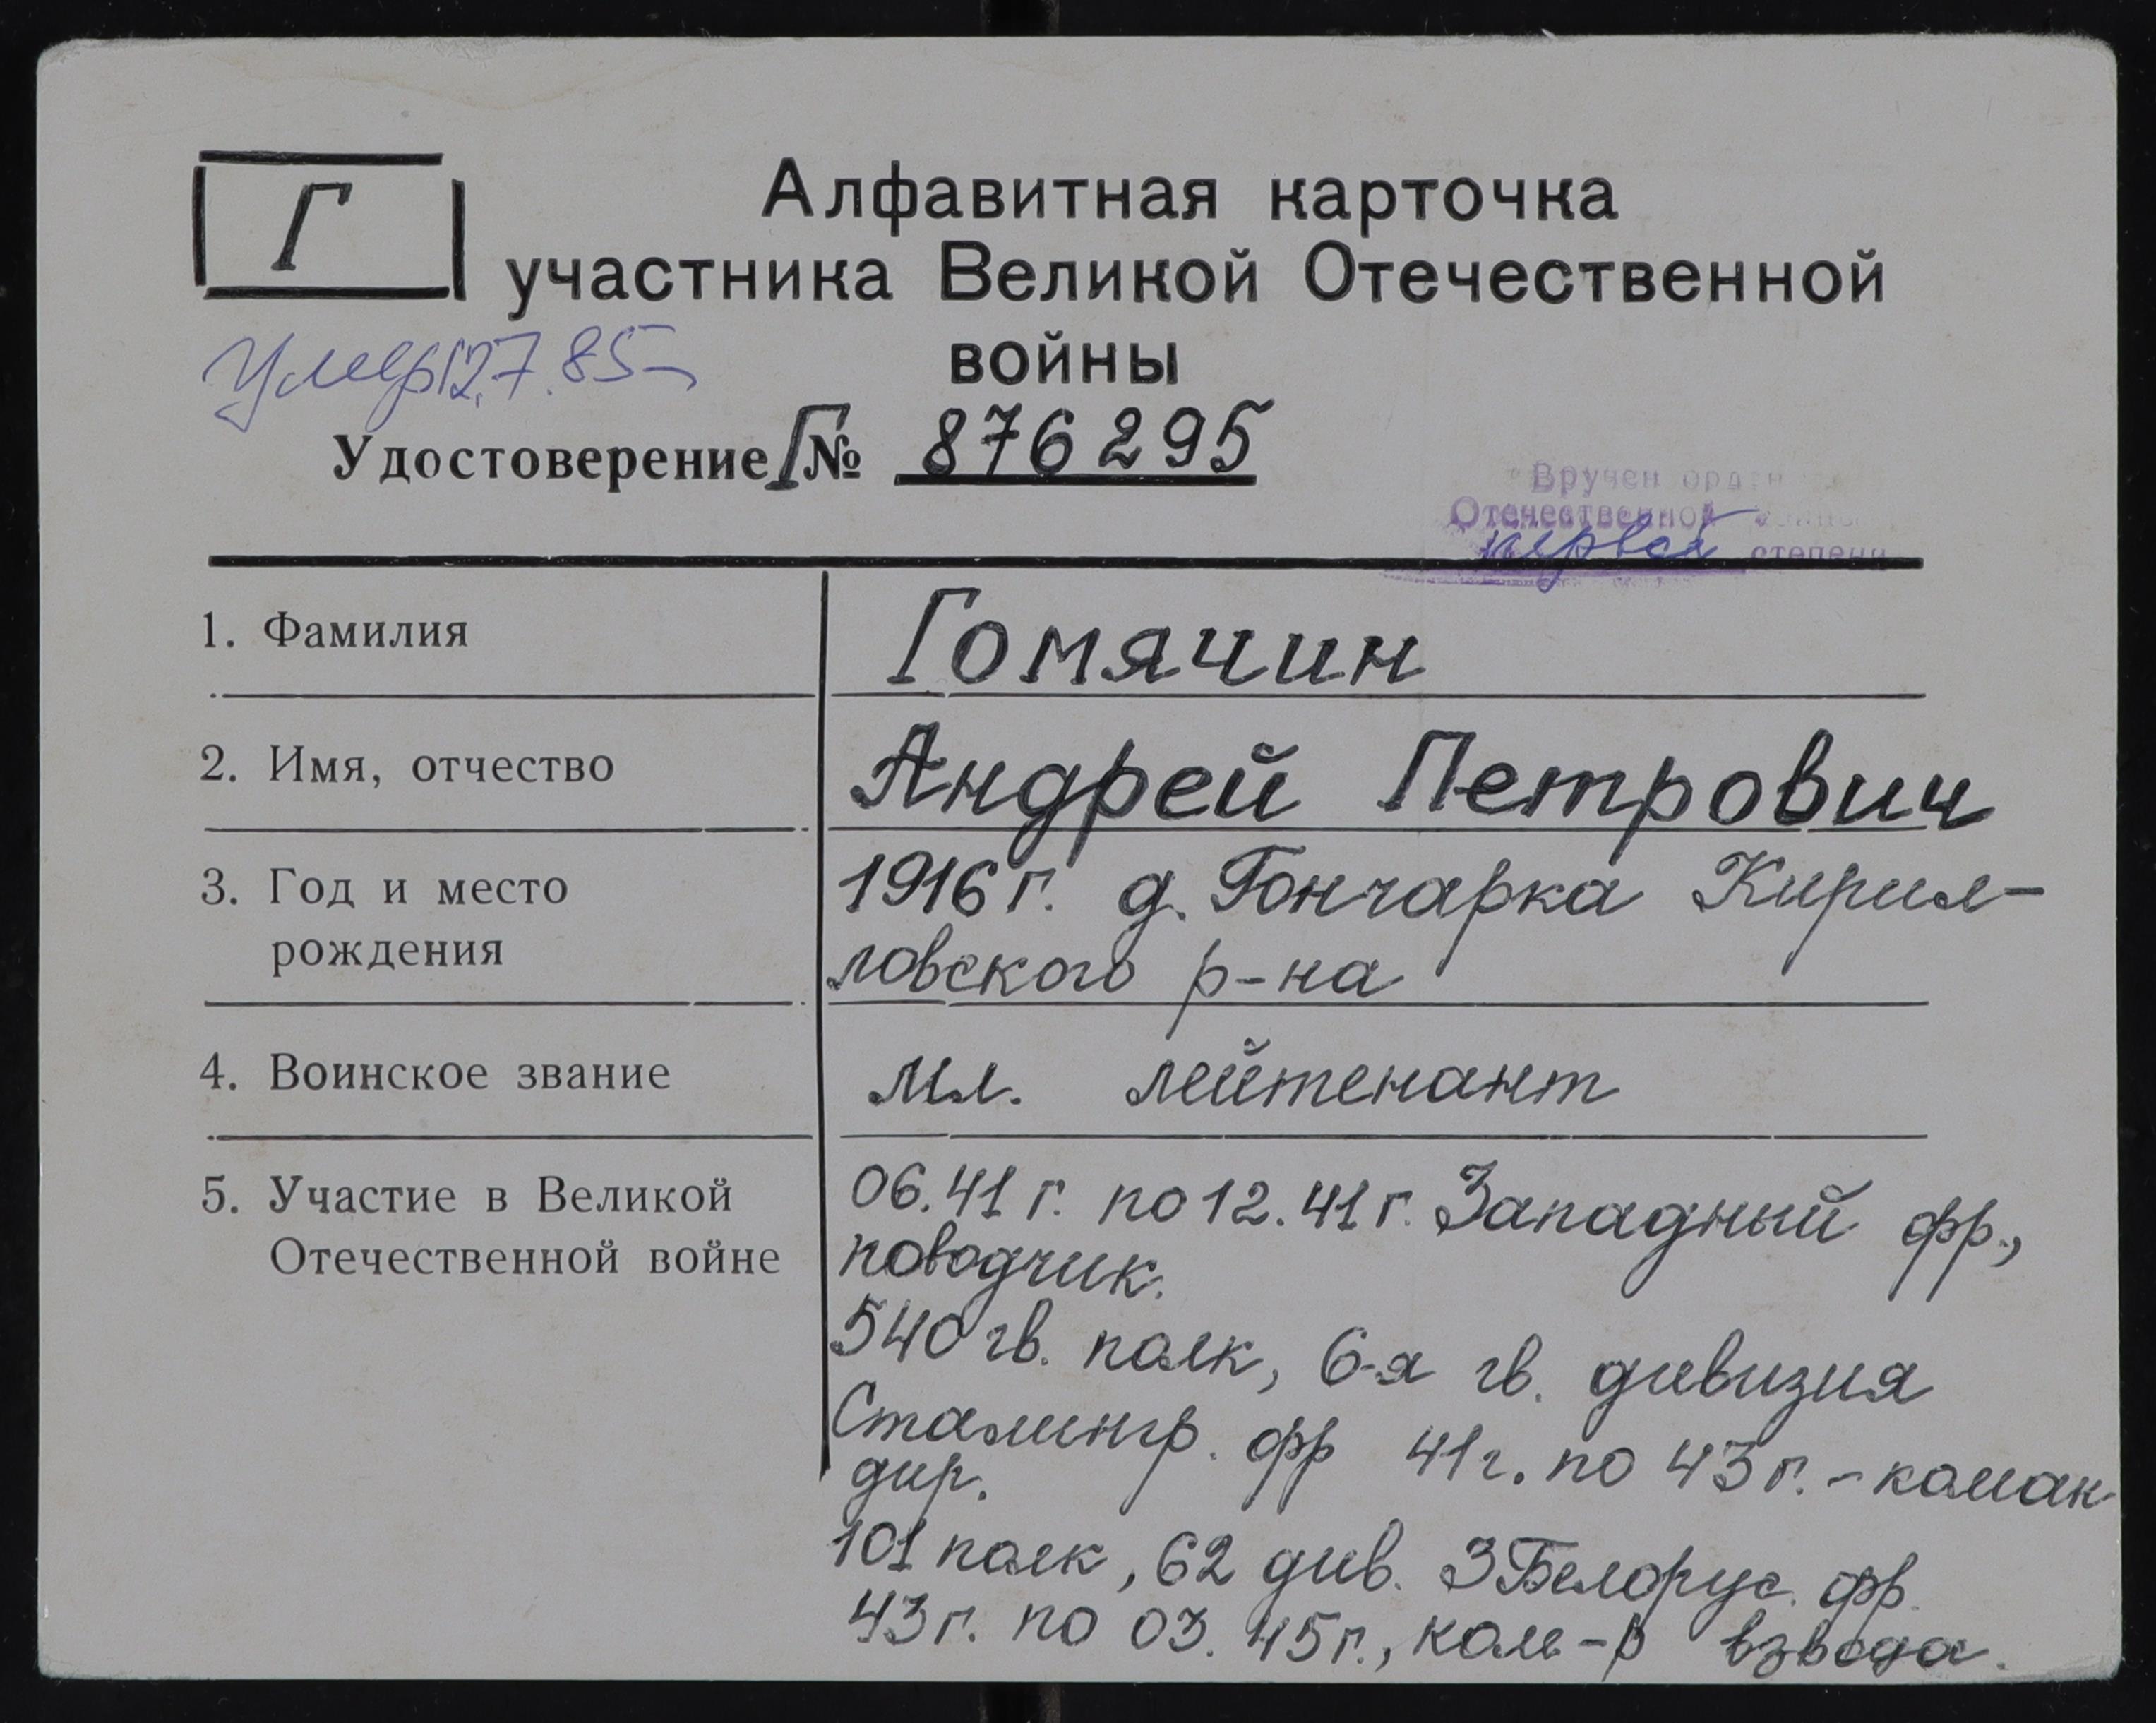 Г
Алфавитная карточка
участника Великой Отечественной
войны
Умер 12.7.85
Удостоверение Г№ 876295
Вручен орден
Отечественной войны
первой степени
1. Фамилия
Гомячин
2. Имя, отчество
Андрей Петрович
3. Год и место
рождения
1916 г. д. Гончарка Кирил-
ловского р-на
4. Воинское звание
мл. лейтенант
5. Участие в Великой
Отечественной войне
06.41 г. по 12.41 г. Западный фр.,
поводчик.
540 гв. полк, 6-я гв. дивизия
Сталингр. фр 41г. по 43 г. - коман
дир.
101 полк, 62 див. 3 Белорус. фр.
43 г. по 03.45 г., ком-р взвода.